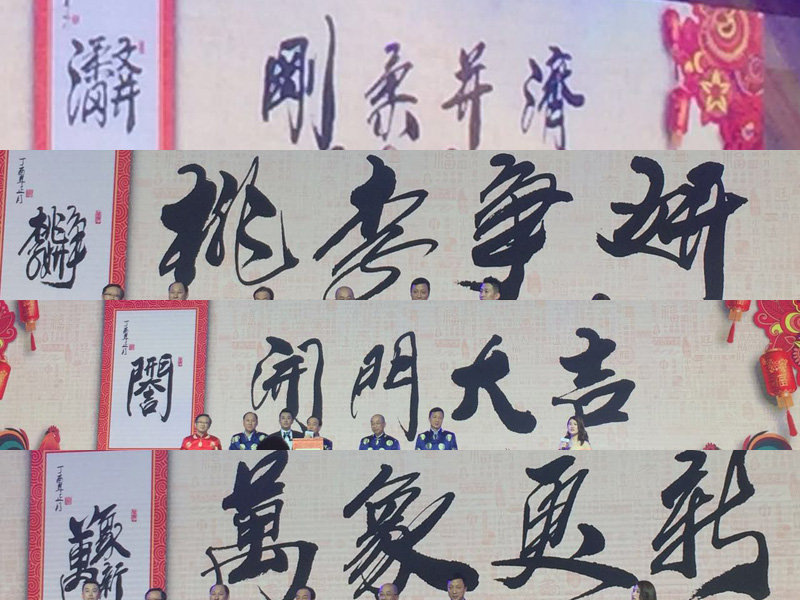 剛柔并濟
丁酉年正月
桃李争妍
丁酉年正月
開門大吉
丁酉年正月
萬象更新